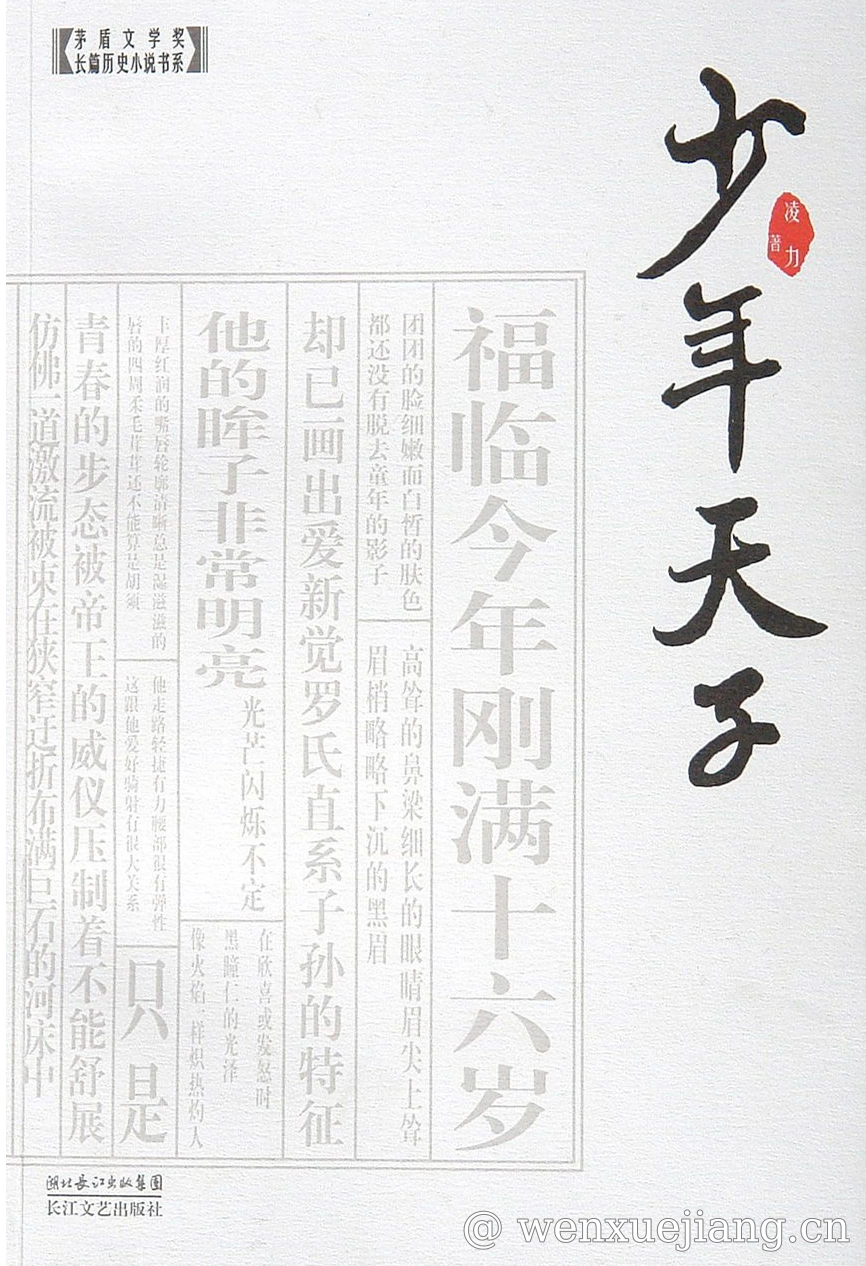 茅盾文学奖
长篇历史小说书系
少年天子
凌力
著
福临今年刚满十六岁
团团的脸细嫩而白皙的肤色
都还没有脱去童年的影子
高耸的鼻梁细长的眼睛眉尖上耸
眉梢略略下沉的黑眉
却已画出爱新觉罗氏直系子孙的特征
他的眸子非常明亮
光芒闪烁不定
在欣喜或发怒时
黑瞳仁的光泽
像火焰一样炽热灼人
丰厚红润的嘴唇轮廓清晰总是湿滋滋的
唇的四周柔毛茸茸还不能算是胡须
他走路轻捷有力腰部很有弹性
这跟他爱好骑射有很大关系
只是
青春的步态被帝王的威仪压制着不能舒展
仿佛一道激流被束在狭窄迂折布满巨石的河床中
湖北长江出版集团
长江文艺出版社
@ wenxuejiang.cn